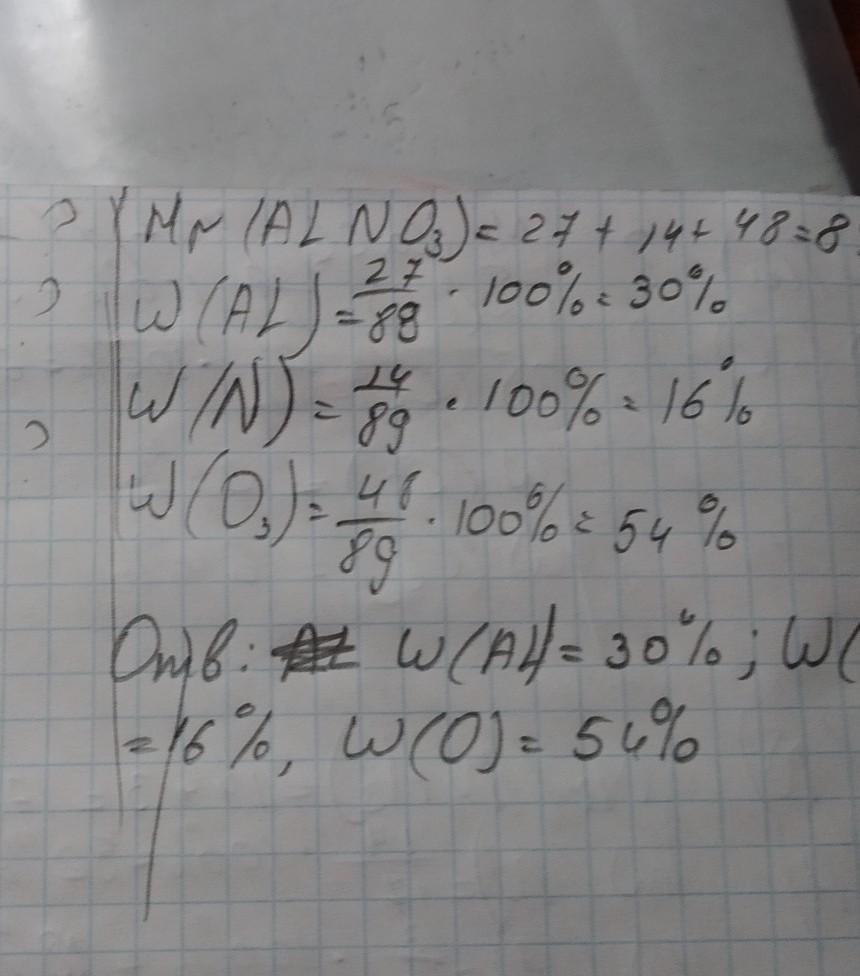 Mr(ALNO₃) = 27 + 14 + 48 = 8
W(AL) = 27/89 · 100% = 30%
W(N) = 14/89 · 100% = 16%
W(O₃) = 48/89 · 100% = 54%
Отв: W(Al) = 30%; W(
= 16%, W(O) = 54%